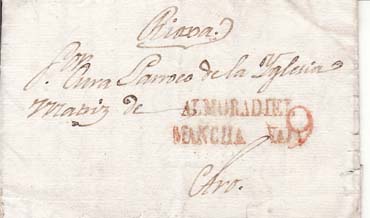 Rioxa.
Sor
Cura Parroco de la Yglesia
Matriz de
ALMORADIEL
MANCHA
9
Aro.